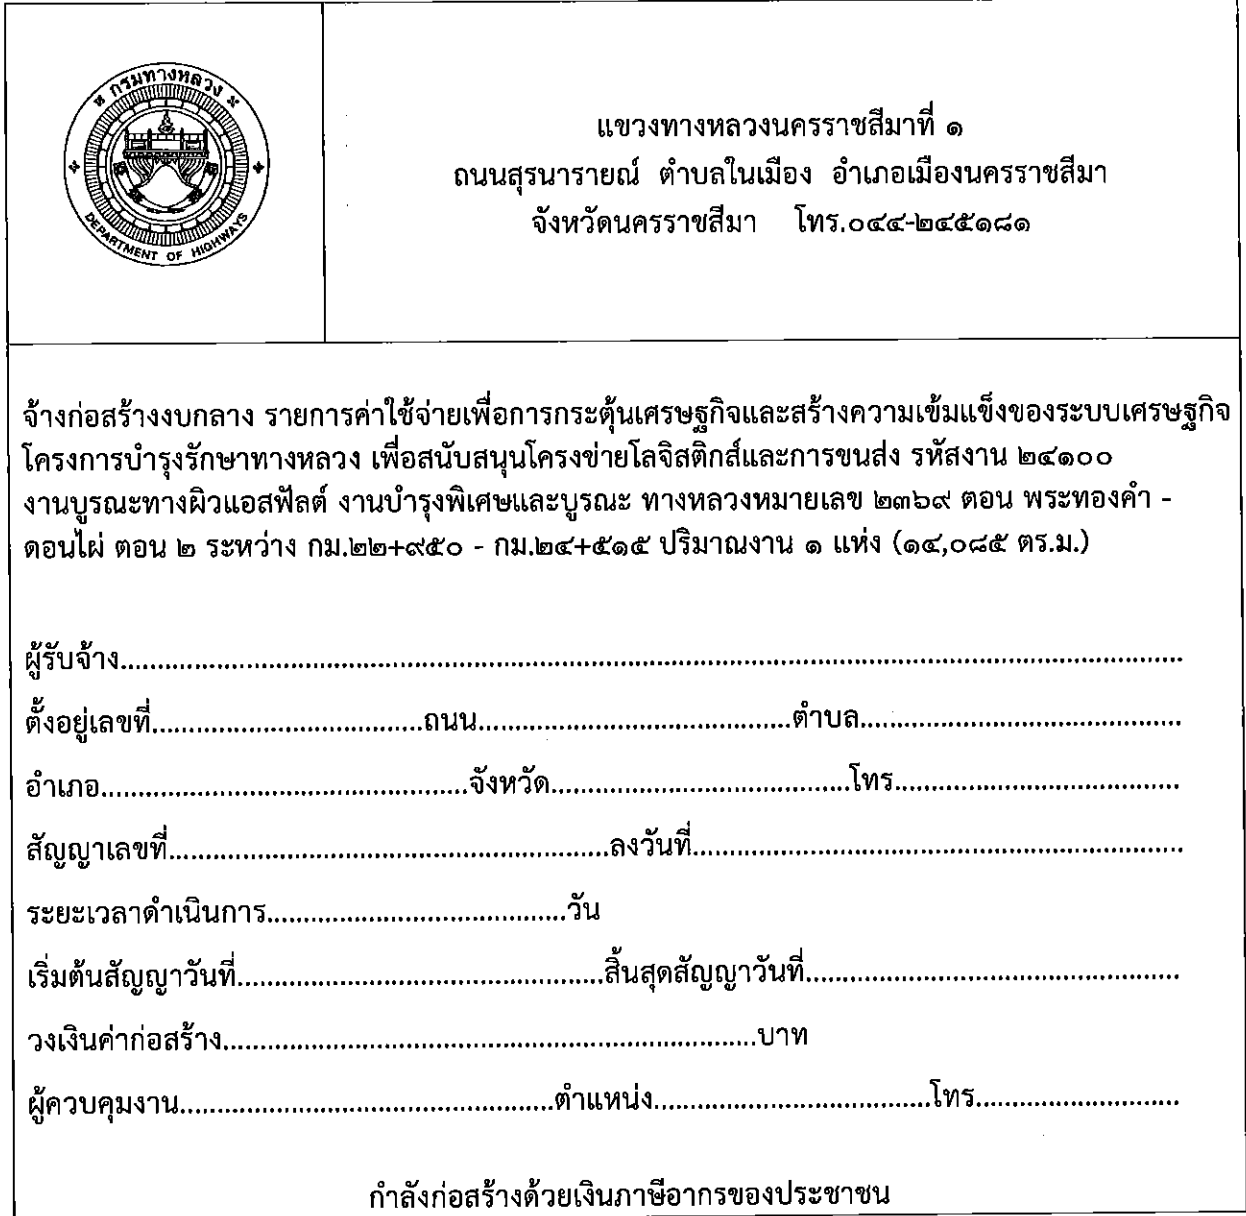 กรมทางหลวง
DEPARTMENT OF HIGHWAYS
แขวงทางหลวงนครราชสีมาที่ ๑
ถนนสุรนารายณ์ ตำบลในเมือง อำเภอเมืองนครราชสีมา
จังหวัดนครราชสีมา โทร.๐๔๔-๒๔๕๑๘๑
จ้างก่อสร้างงบกลาง รายการค่าใช้จ่ายเพื่อการกระตุ้นเศรษฐกิจและสร้างความเข้มแข็งของระบบเศรษฐกิจ
โครงการบำรุงรักษาทางหลวง เพื่อสนับสนุนโครงข่ายโลจิสติกส์และการขนส่ง รหัสงาน ๒๔๑๐๐
งานบูรณะทางผิวแอสฟัลต์ งานบำรุงพิเศษและบูรณะ ทางหลวงหมายเลข ๒๓๖๙ ตอน พระทองคำ -
ดอนไผ่ ตอน ๒ ระหว่าง กม.๒๒+๙๕๐ - กม.๒๔+๕๑๕ ปริมาณงาน ๑ แห่ง (๑๔,๐๘๕ ตร.ม.)
ผู้รับจ้าง..........
ตั้งอยู่เลขที่..........ถนน..........ตำบล..........
อำเภอ..........จังหวัด..........โทร..........
สัญญาเลขที่..........ลงวันที่..........
ระยะเวลาดำเนินการ..........วัน
เริ่มต้นสัญญาวันที่..........สิ้นสุดสัญญาวันที่..........
วงเงินค่าก่อสร้าง..........บาท
ผู้ควบคุมงาน..........ตำแหน่ง..........โทร..........
กำลังก่อสร้างด้วยเงินภาษีอากรของประชาชน